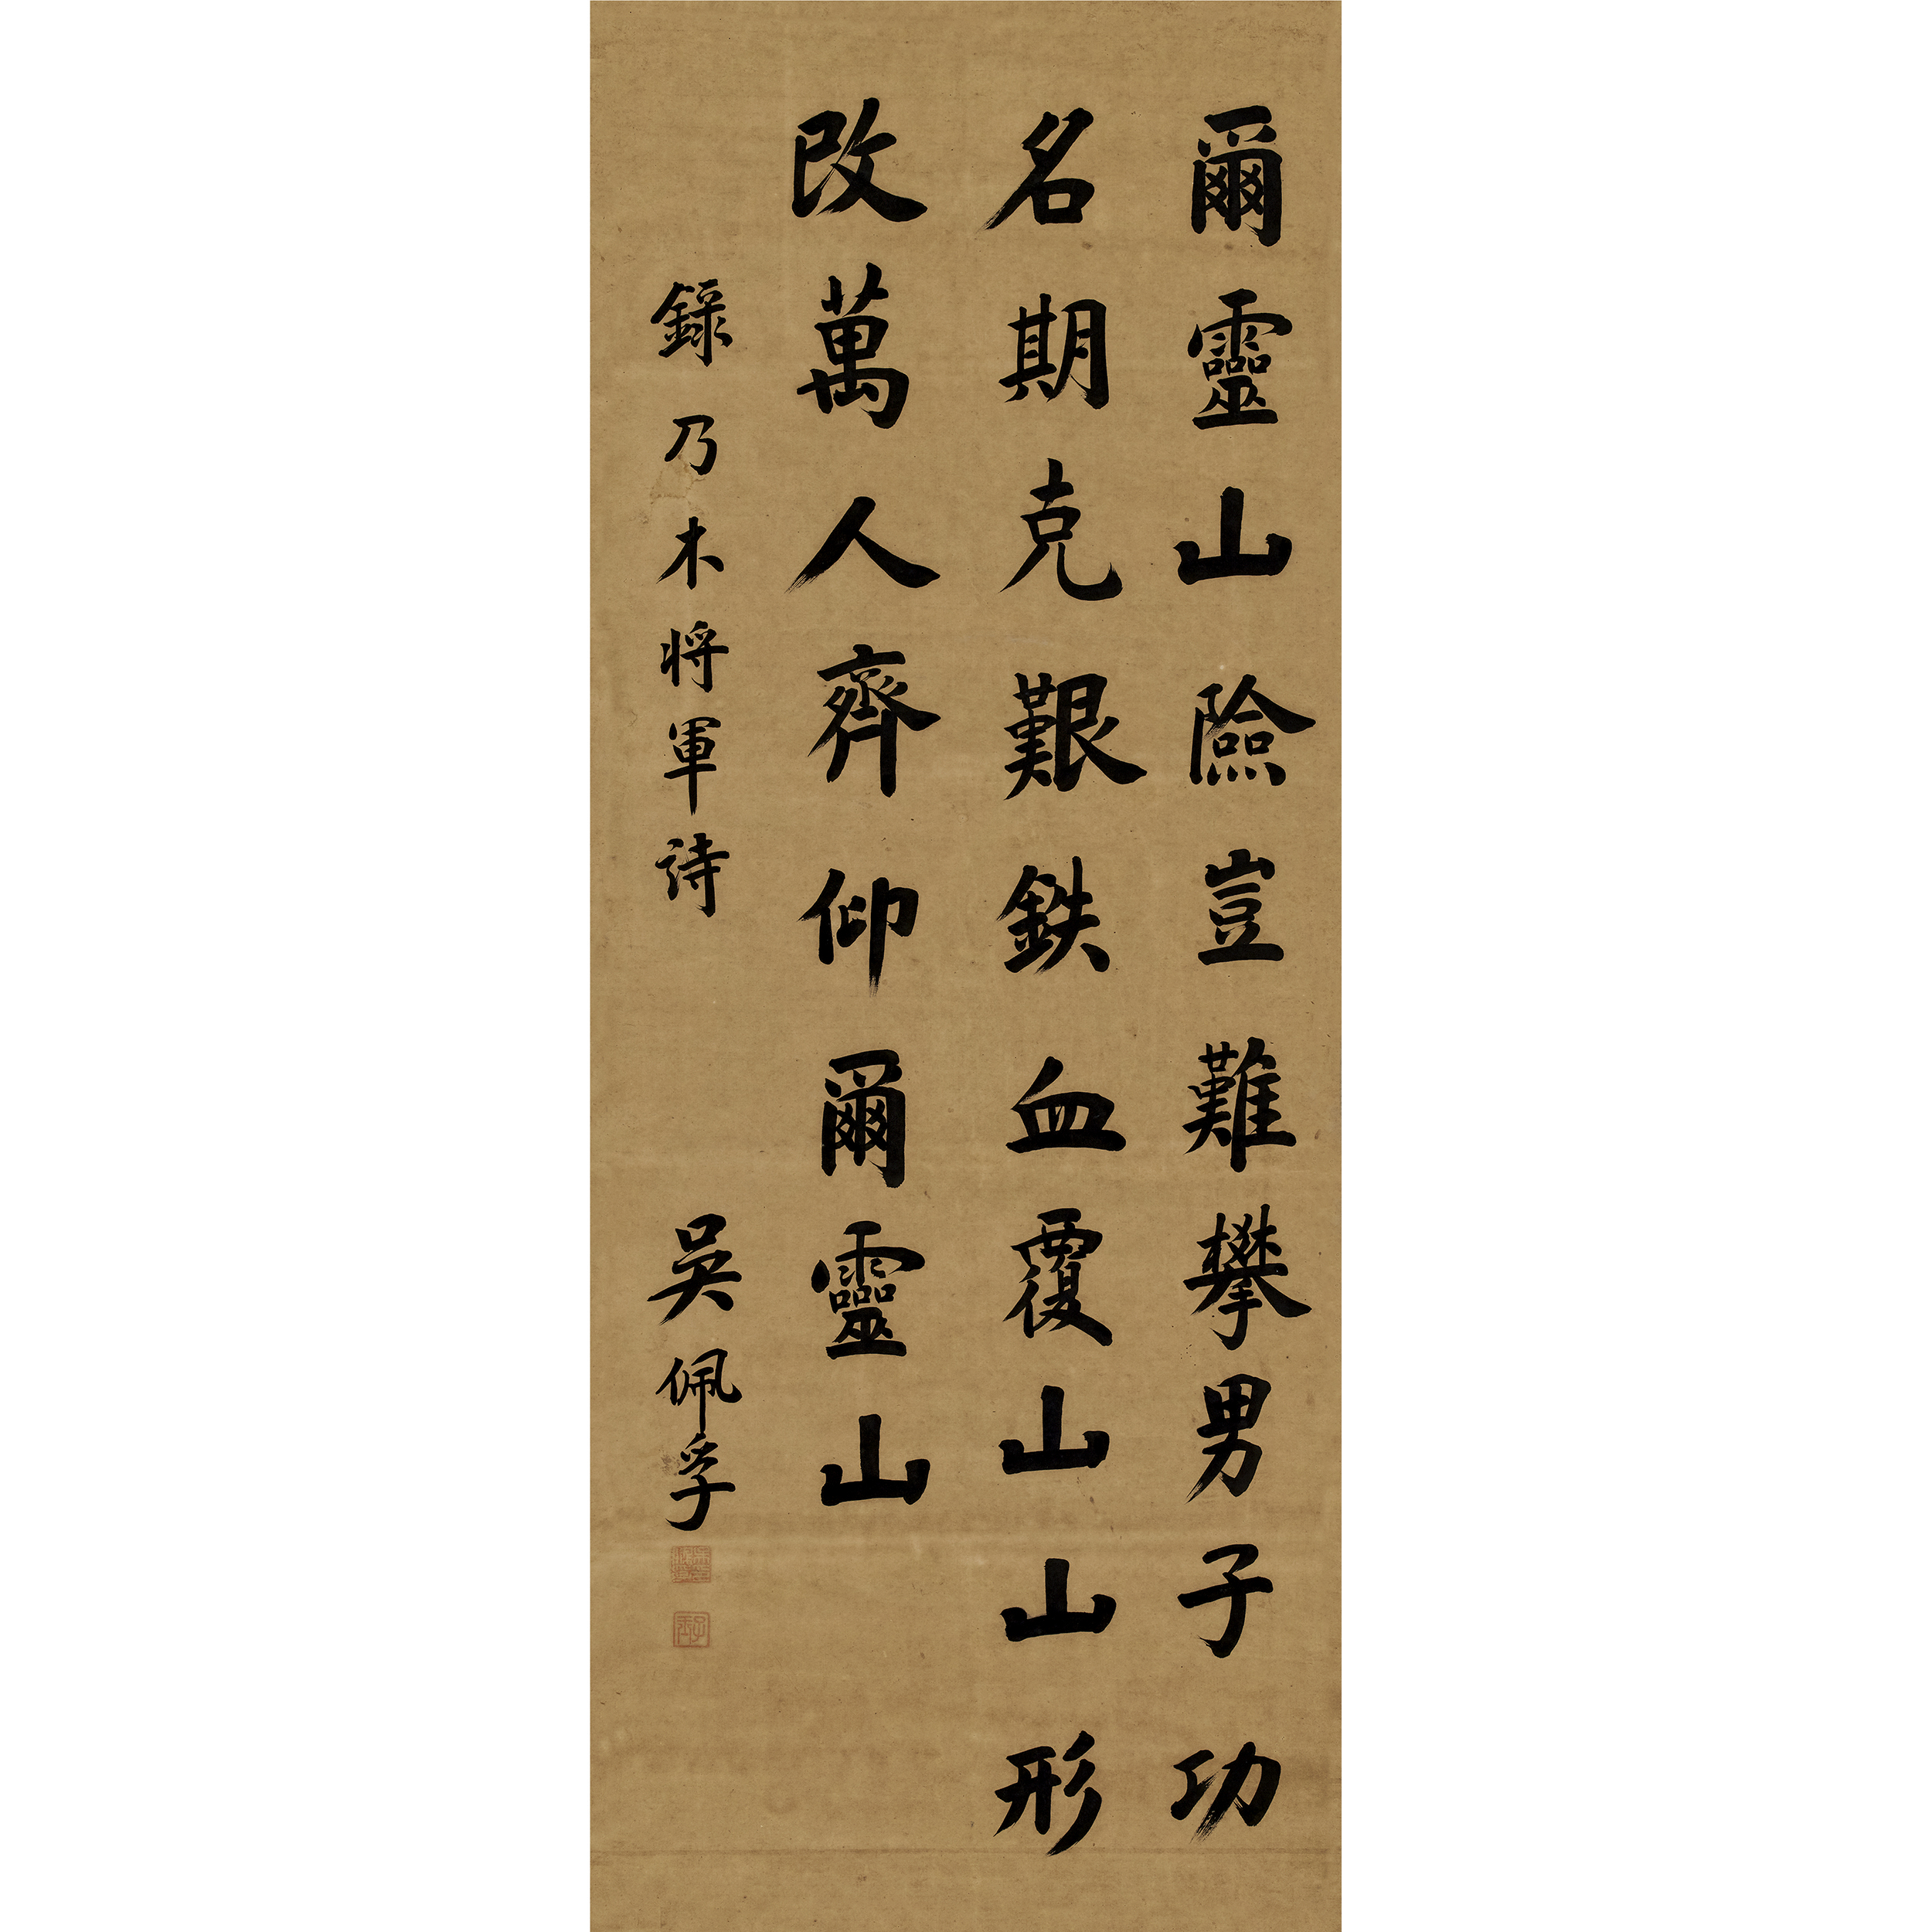 爾靈山險豈難攀男子功
名期克艱鉄血覆山山形
改萬人齊仰爾靈山
錄乃木将軍詩 吳佩孚